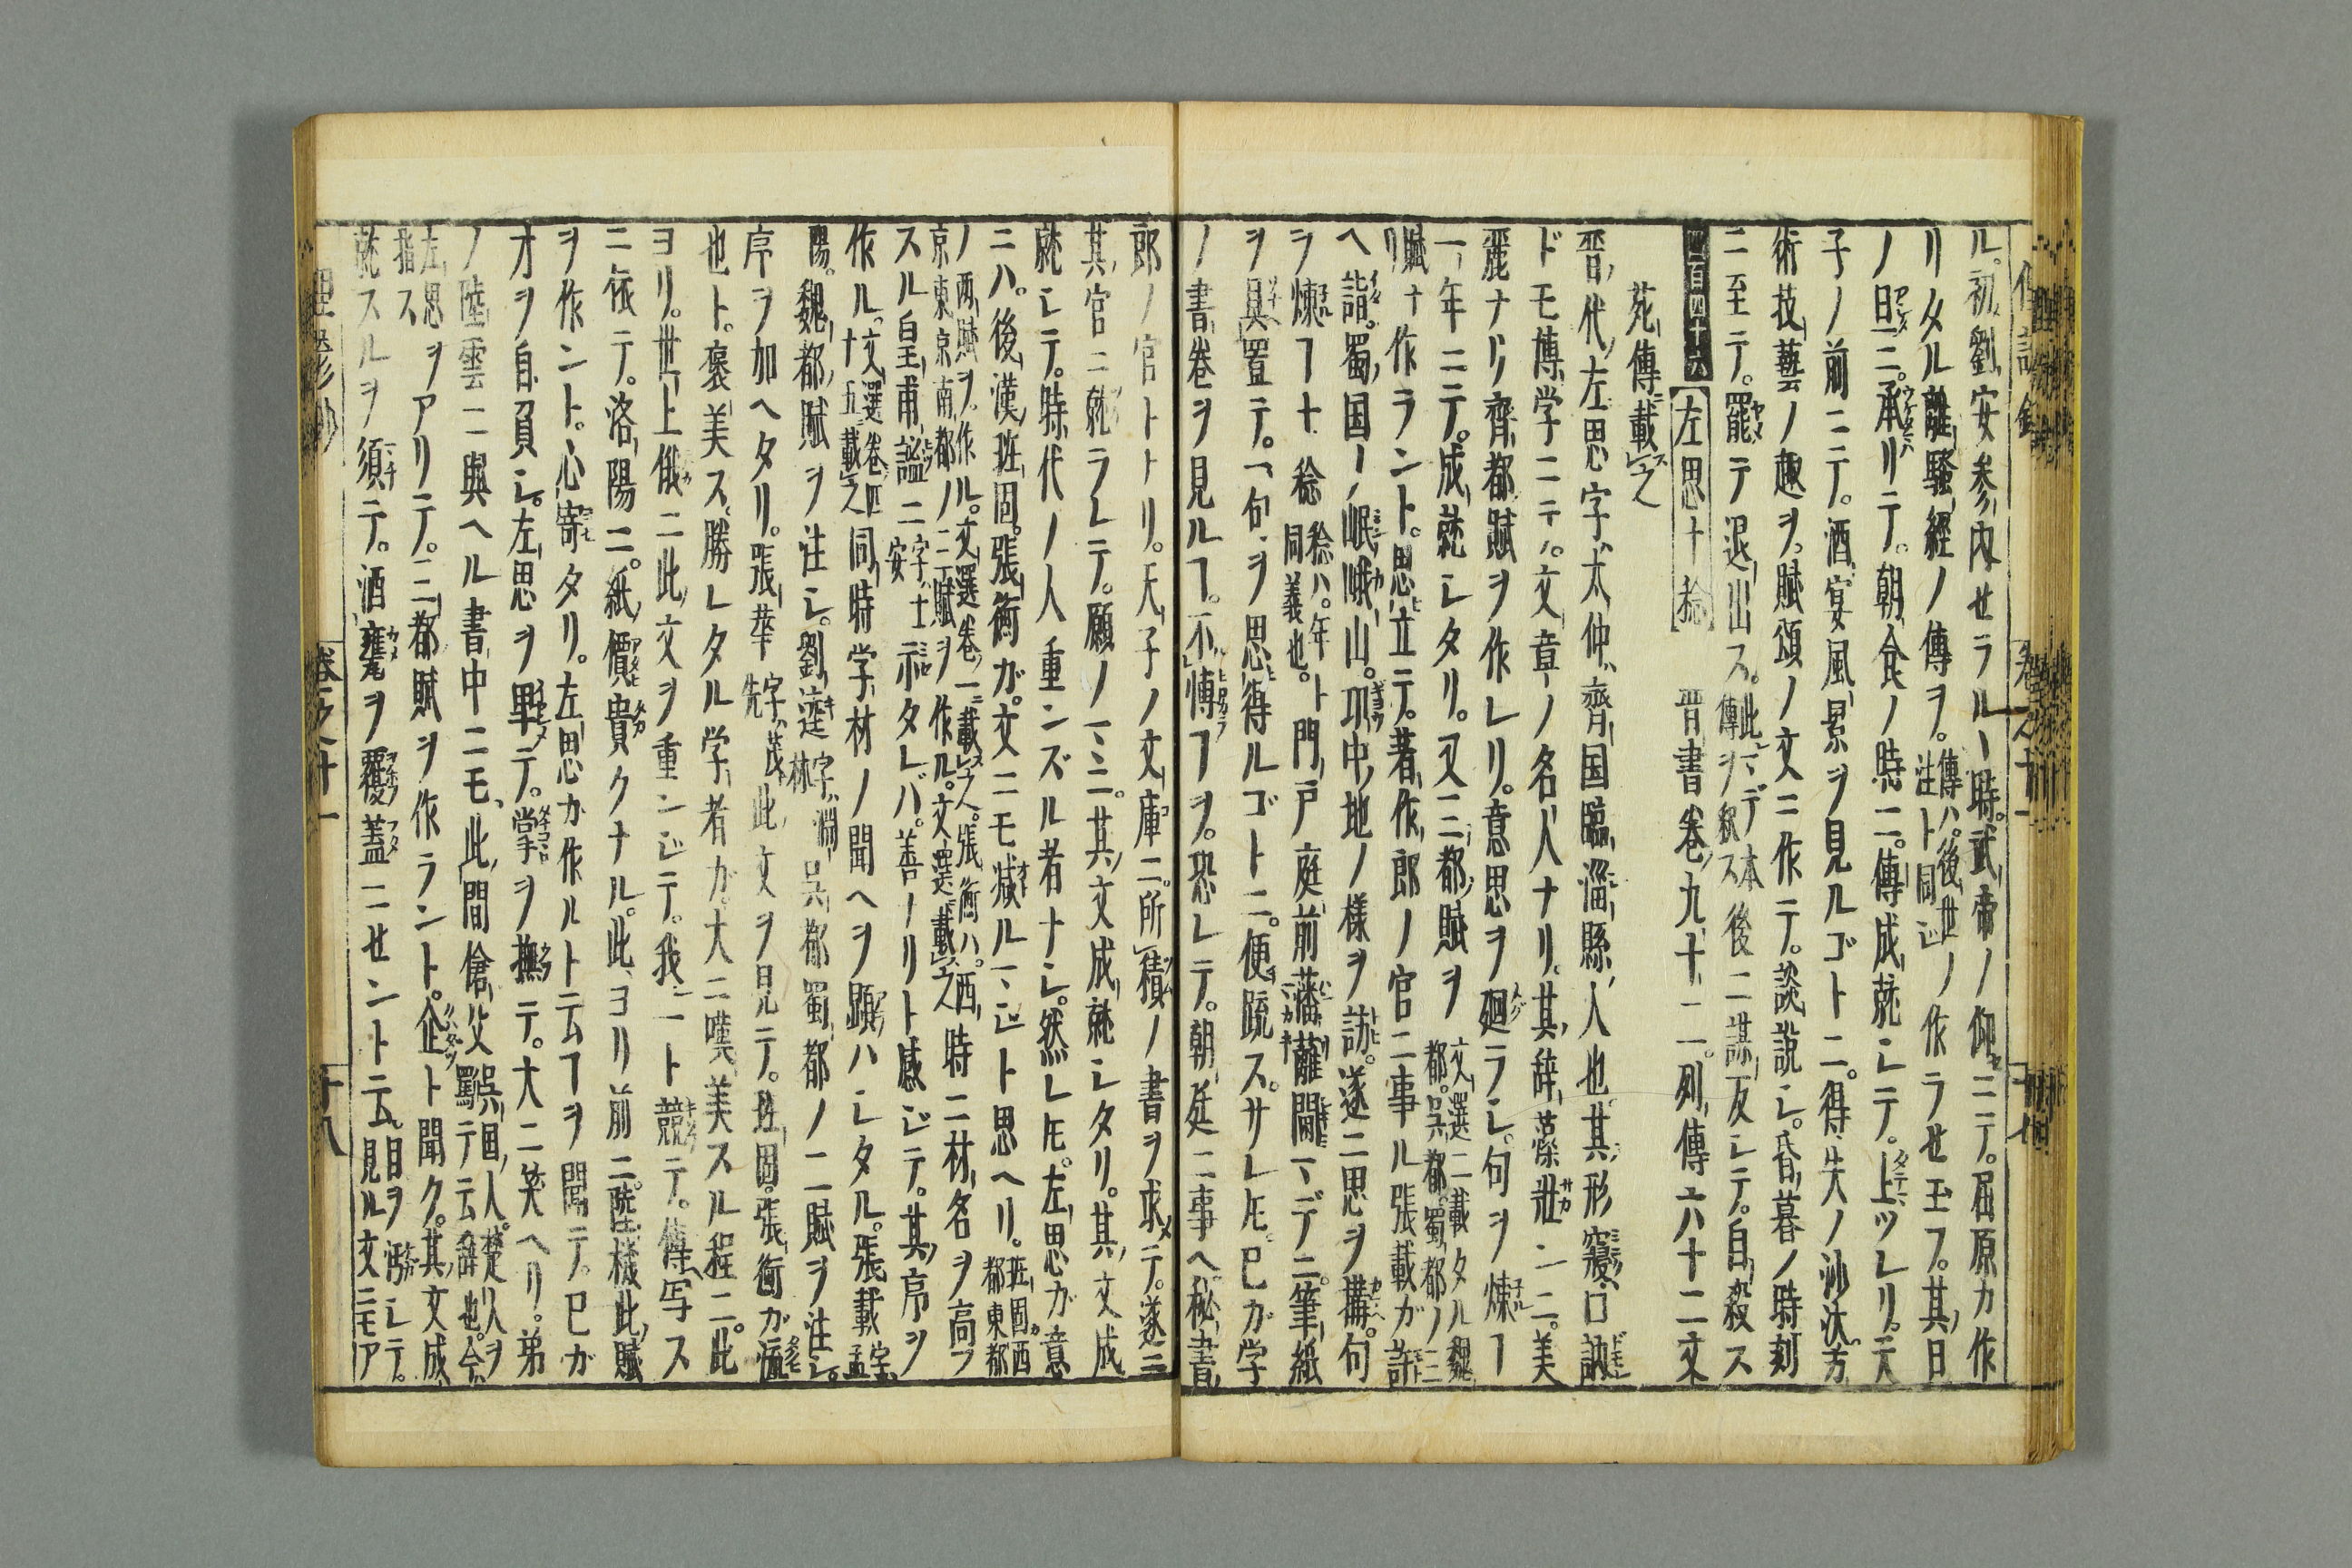 ル。初劉安參内せラルヽ時。武帝ノ仰ニテ。屈原カ作
リタル離騒經ノ傳ヲ。傳ハ。後世ノ注ト同シ作ラせ玉フ。其日
ノ旦ニ。承リテ。朝食ノ時ニ。傳成就シテ。上ツレリ。天
子ノ前ニテ。酒宴風景ヲ見ルゴトニ。得失ノ沙汰。方
術技藝ノ趣ヲ。賦頌ノ文ニ作テ。談説シ。昏暮ノ時刻
ニ至テ。罷テ退出ス。此マデ本傳ヲ釈ス後ニ謀反シテ。自殺ス
四百四十六 左思十稔 晋書巻九十二。列傳六十二文
苑傳載之
晋代左思字太仲齊国臨淄縣人也其形寢口訥
ドモ博学ニテ。文章ノ名人ナリ。其辞藻壯ンニ。美
麗ナリ齊都賦ヲ作レリ。意思ヲ廻ラシ。句ヲ煉ヿ
一年ニテ。成就シタリ。又三都賦ヲ文選ニ載タル魏都。呉都。蜀都ノ三賦ナリ
作ラント。思立テ。著作郎ノ官ニ事ル張載ガ許
ヘ詣。蜀国ノ岷峨山。邛中地ノ樣ヲ訪。遂ニ思ヲ構。句
ヲ煉ヿ十稔稔ハ。年ト同義也。門戸庭前藩籬閫マデニ。筆紙
ヲ具置テ。一句ヲ思得ルゴトニ。便疏ス。サレ𪜈。已ガ学
ノ書巻ヲ見ルヿ。不博ヿヲ。恐レテ。朝廷ニ事ヘ。秘書
郎ノ官トトリ。天子ノ文庫ニ。所積ノ書ヲ求テ。遂ニ
其官ニ就ラレテ。願ノマヽニ。其文成就シタリ。其文成
就シテ。時代ノ人重ンズル者ナシ。然レ𪜈。左思ガ意
ニハ。後漢班固。張衡ガ。文ニモ減ルマジト思ヘリ。班固西都東都
ノ両賦ヲ。作ル。文選巻一ニ載之。張衡ハ。西京東京南都ノ三賦ヲ作ル。文選ニ載之時ニ材名ヲ高フ
スル皇甫謐字士安ニ示タレバ。善ノリト感ジテ。其序ヲ
作ル。文選巻四十五載之同時学材ノ聞ヘヲ顕ハシタル。張載字孟
陽。魏都賦ヲ注シ。劉逵字淵林呉都蜀都ノ二賦ヲ注シ。
序ヲ加ヘタリ。張華字茂先此文ヲ見テ。班固。張衡ガ流
也ト。褒美ス。勝レタル学者ガ。大ニ嘆美スル程ニ。此
ヨリ。世上俄ニ此文ヲ重ンジテ。我一ト競テ。傳写ス
ニ依テ。洛陽ニ。紙價貴クナル。此ヨリ前ニ。陸機此賦
ヲ作ント。心寄タリ。左思カ作ルト云フヿヲ聞テ。已ガ
才ヲ自負シ。左思ヲ卑テ。掌ヲ撫テ。大ニ笑ヘリ。弟
ノ陸雲ニ與ヘル書中ニモ、此間傖父呉国人。楚人ヲ罵テ云辞也。今
左思ヲ指スアリテ。三都賦ヲ作ラント。企ト聞ク。其文成
就スルヲ須テ。酒甕ヲ覆蓋ニせント云。目ヲ汚シテ。見ル文ニモア
巻之十一 十八